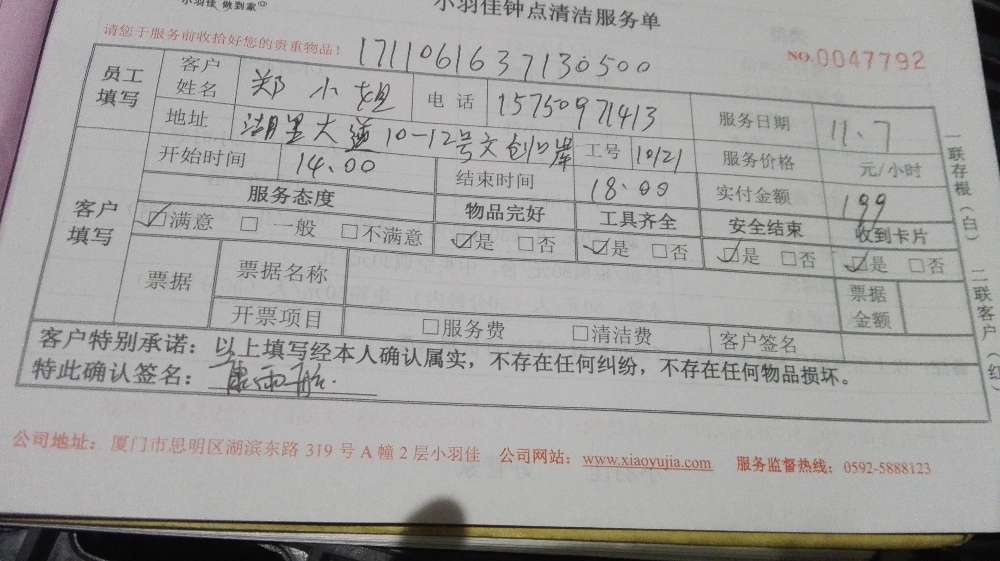 小羽佳 做到家
小羽佳钟点清洁服务单
请您于服务前收拾好您的贵重物品！ 1711061637130500 NO.0047792
员工填写 客户姓名 郑小姐 电话 15750971413 服务日期 11.7
地址 湖里大道10-12号文创口岸 工号 1021 服务价格 元/小时
客户填写 开始时间 14.00 结束时间 18.00 实付金额 199
服务态度 物品完好 工具齐全 安全结束 收到卡片
☑满意 □一般 □不满意 ☑是 □否 ☑是 □否 ☑是 □否 ☑是 □否
票据 票据名称 票据金额
开票项目 □服务费 □清洁费 客户签名
客户特别承诺：以上填写经本人确认属实，不存在任何纠纷，不存在任何物品损坏。
特此确认签名：
一联存根（白） 二联客户（红）
公司地址：厦门市思明区湖滨东路 319 号 A 幢 2 层小羽佳 公司网站：www.xiaoyujia.com 服务监督热线：0592-5888123